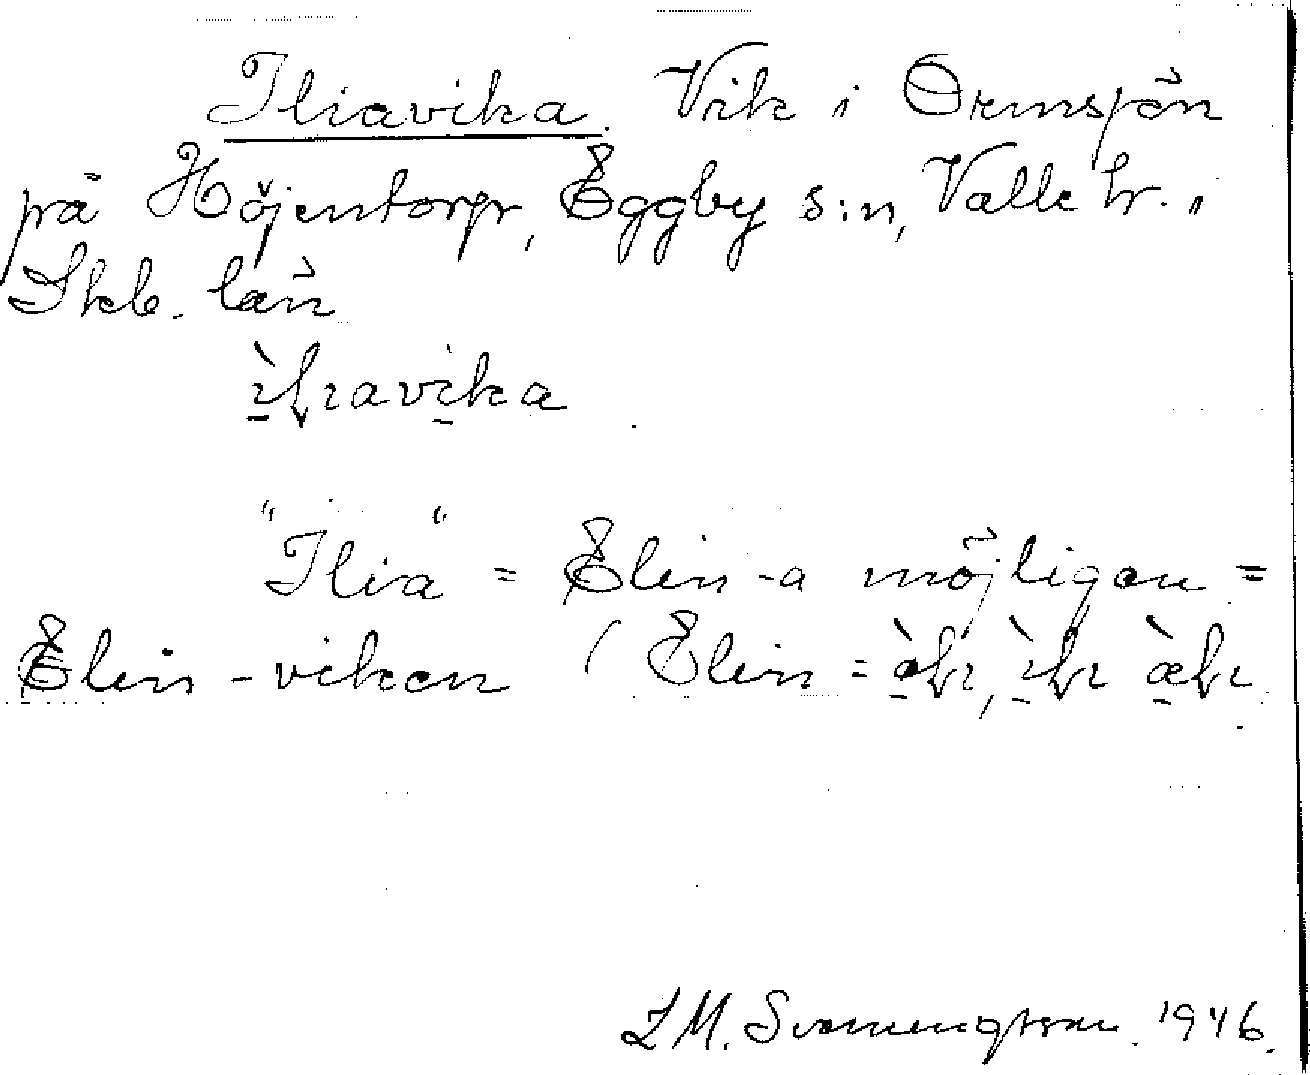 Iliavika. Vik i Ormsjön
på Höjentorp, Eggby s:n, Valle hr. i
Skb. län
ìlıavika
"Ilia" = Elin -a möjligen =
Elin - viken (Elin = 
L M. Svenungsson. 1946.